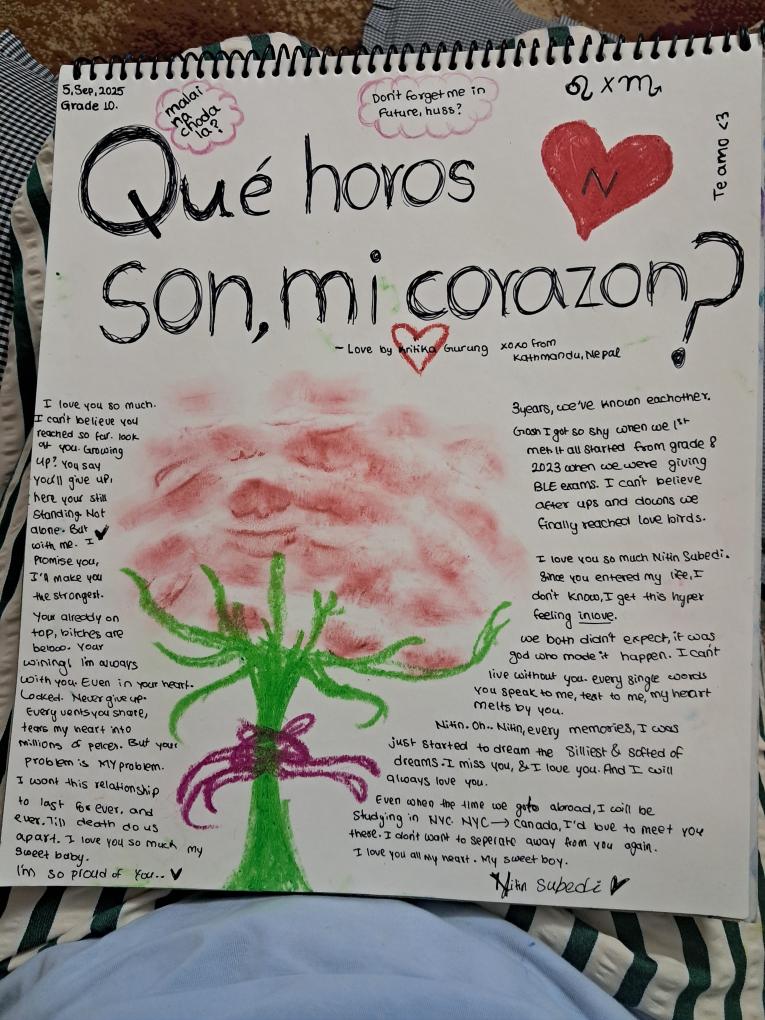 5,Sep,2025
Grade 10.
malai
na
choda
la?
Don't forget me in
Future, huss?
♌ x ♏
Te amo <3
N
Qué horos
son, mi corazon?
~ Love by Kritika Gurung
xoxo from
Kathmandu, Nepal
I love you so much.
I can't believe you
reached so far. look
at you. Growing
up? You say
you'll give up,
here your still
standing. Not
alone. But
with me. I
Promise you,
I'll make you
the strongest.
Your already on
top, bitches are
below. Your
wining! I'm always
with you. Even in your heart.
Locked. Never give up.
Every vents you share,
tears my heart into
millions of peices. But your
problem is MY problem.
I want this relationship
to last for ever, and
ever. Till death do us
apart. I love you so much my
sweet baby.
I'm so proud of you..
3years, we've known eachother.
Gosh I got so shy when we 1st
met. It all started from grade 8
2023 when we were giving
BLE exams. I can't believe
after ups and downs we
finally reached love birds.
I love you so much Nitin Subedi.
Since you entered my life, I
don't know, I get this hyper
feeling inlove.
we both didn't expect, it was
god who made it happen. I can't
live without you. every single words
you speak to me, text to me, my heart
melts by you.
Nitin. Oh.. Nitin, every memories, I was
just started to dream the silliest & softed of
dreams. I miss you, & I love you. And I will
always love you.
Even when the time we goto abroad, I will be
studying in NYC. NYC → Canada, I'd love to meet you
there. I don't want to seperate away from you again.
I love you all my heart. My sweet boy.
Nitin Subedi